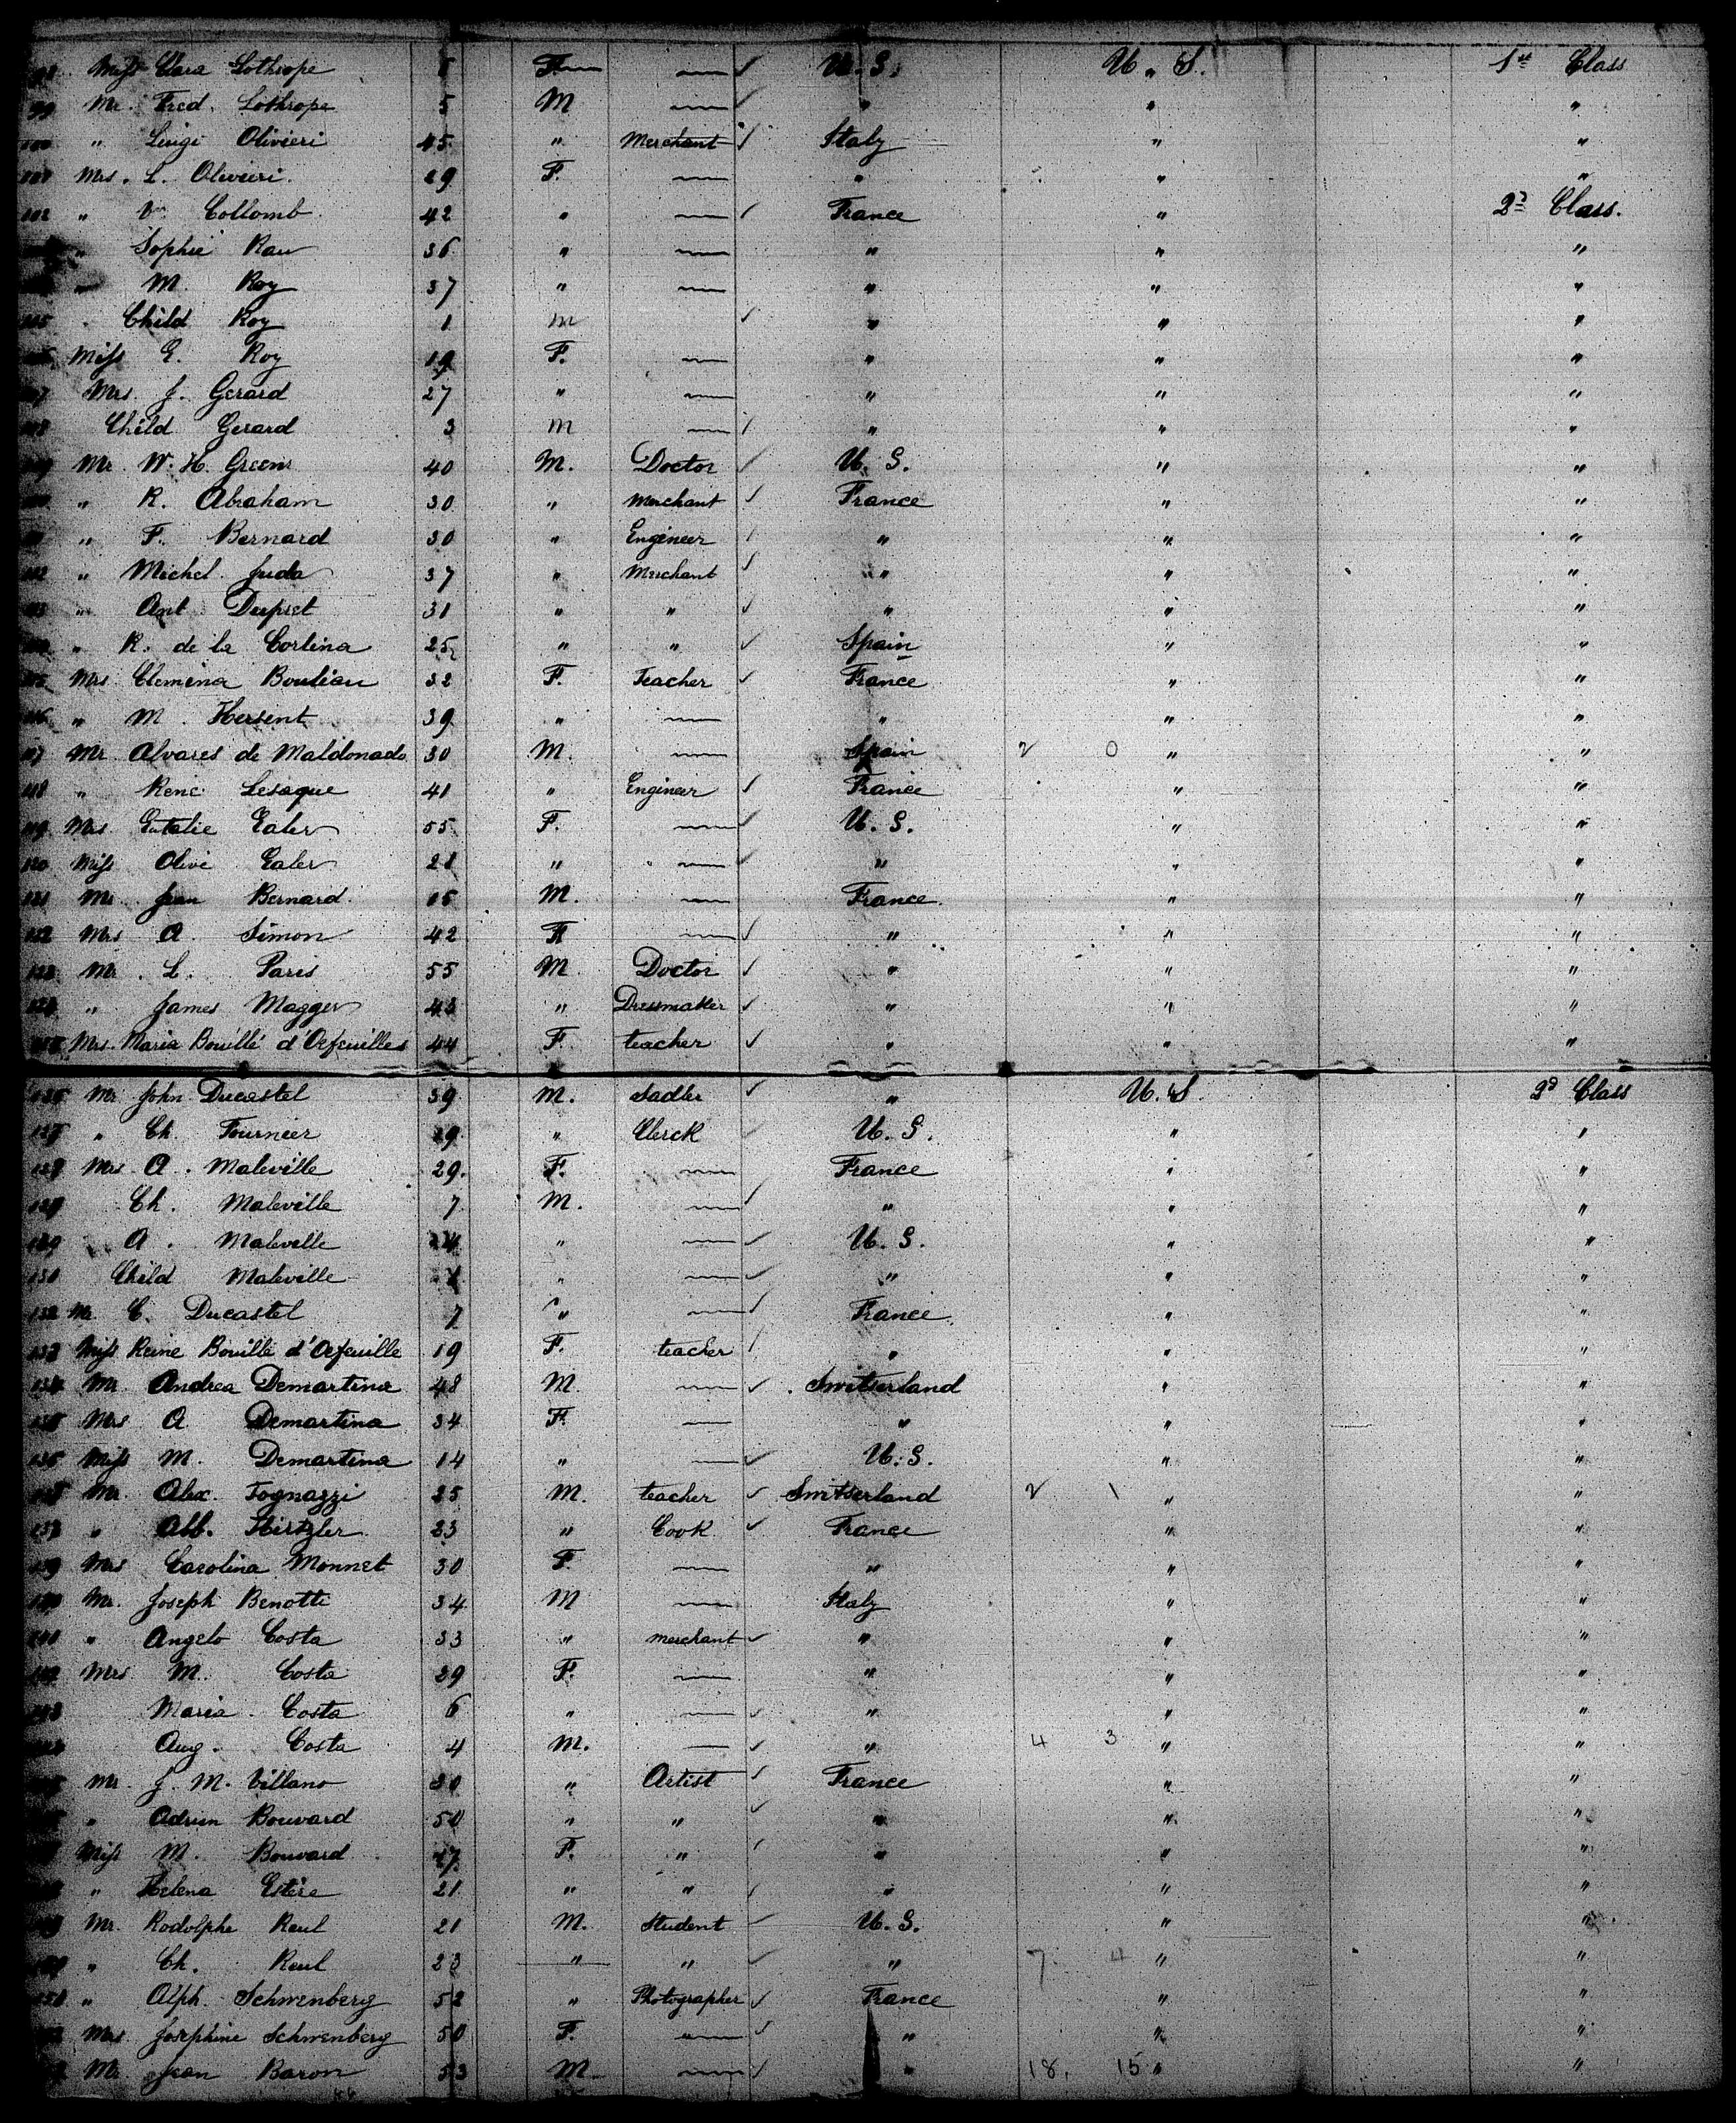 98 Miss Clara Lothrope F. — U. S. U. S. 1st Class
99 Mr. Fred. Lothrope 5 M — " " "
100 " Luigi Olivieri 45 " Merchant Italy " "
101 Mrs. L. Olivieri. 29 F. — " " "
102 " Vve Collomb 42 " — France " 2d Class.
" Sophie Rau 36 " — " " "
" M. Roy 37 " — " " "
105 Child Roy 1 M " " "
Miss E. Roy 19 F. — " " "
107 Mrs. J. Gerard 27 " — " " "
108 Child Gerard 3 M — " " "
109 Mr. W. H. Greene 40 M. Doctor U. S. " "
" R. Abraham 30 " Merchant France " "
" F. Bernard 30 " Engineer " " "
112 " Michel Juda 37 " Merchant " " "
113 " Ant. Dupret 31 " " " " "
" R. de la Cortina 25 " " Spain " "
115 Mrs Clemena Boutian 32 F. Teacher France " "
116 " M. Hersent 39 " — " " "
117 Mr. Alvares de Maldonado 30 M. — Spain 2 0 " "
118 " René Lesague 41 " Engineer France " "
119 Mrs. Eutalie Ealer 55 F. — U. S. " "
120 Miss Olive Ealer 21 " — " " "
121 Mr Jean Bernard 15 M. — France. " "
122 Mrs A. Simon 42 F — " " "
123 Mr. L. Paris 55 M Doctor " " "
124 " James Magger 43 " Dressmaker " " "
125 Mrs. Maria Bouillé d'Orfeuilles 44 F. teacher " " "
126 Mr John Ducastel 39 M. Sadler " U. S. 2d Class
127 " Ch. Fournier 29 " Clerck U. S. " "
128 Mrs A. Maleville 29. F. — France " "
129 Ch. Maleville 7 M. — " " "
130 A. Maleville " — U. S. " "
131 Child Maleville " — " " "
132 Mr. C. Ducastel 7 " — France " "
133 Miss Reine Bouillé d'Orfeuille 19 F. teacher " " "
134 Mr. Andrea Demartina 48 M. — Switserland " "
135 Mrs A Demartina 34 F. — " " "
136 Miss M. Demartina 14 " — U. S. " "
137 Mr. Alex. Tognazzi 25 M. teacher Switserland 2 1 " "
138 " Alb. Hirtzler 23 " Cook France " "
139 Mrs Carolina Monnet 30 F. — " " "
140 Mr. Joseph Benotti 34 M — Italy " "
141 " Angelo Costa 33 " merchant " " "
142 Mrs M. Costa 29 F. — " " "
143 Maria Costa 6 " — " " "
Aug. Costa 4 M. — " 4 3 " "
Mr. J. M. Villano 30 " Artist France " "
" Adrien Bouvard 50 " " " " "
Miss M. Bouvard 47 F. " " " "
" Helena Estère 21 " " " " "
Mr. Rodolphe Reul 21 M. Student U. S. " "
" Ch. Reul 23 " " " 7 4 " "
151 " Alph. Schwenberg 52 " Photographer France " "
Mrs Josephine Schwenberg 50 F. — " " "
Mr Jean Baron 53 M. — " 18. 15 " "